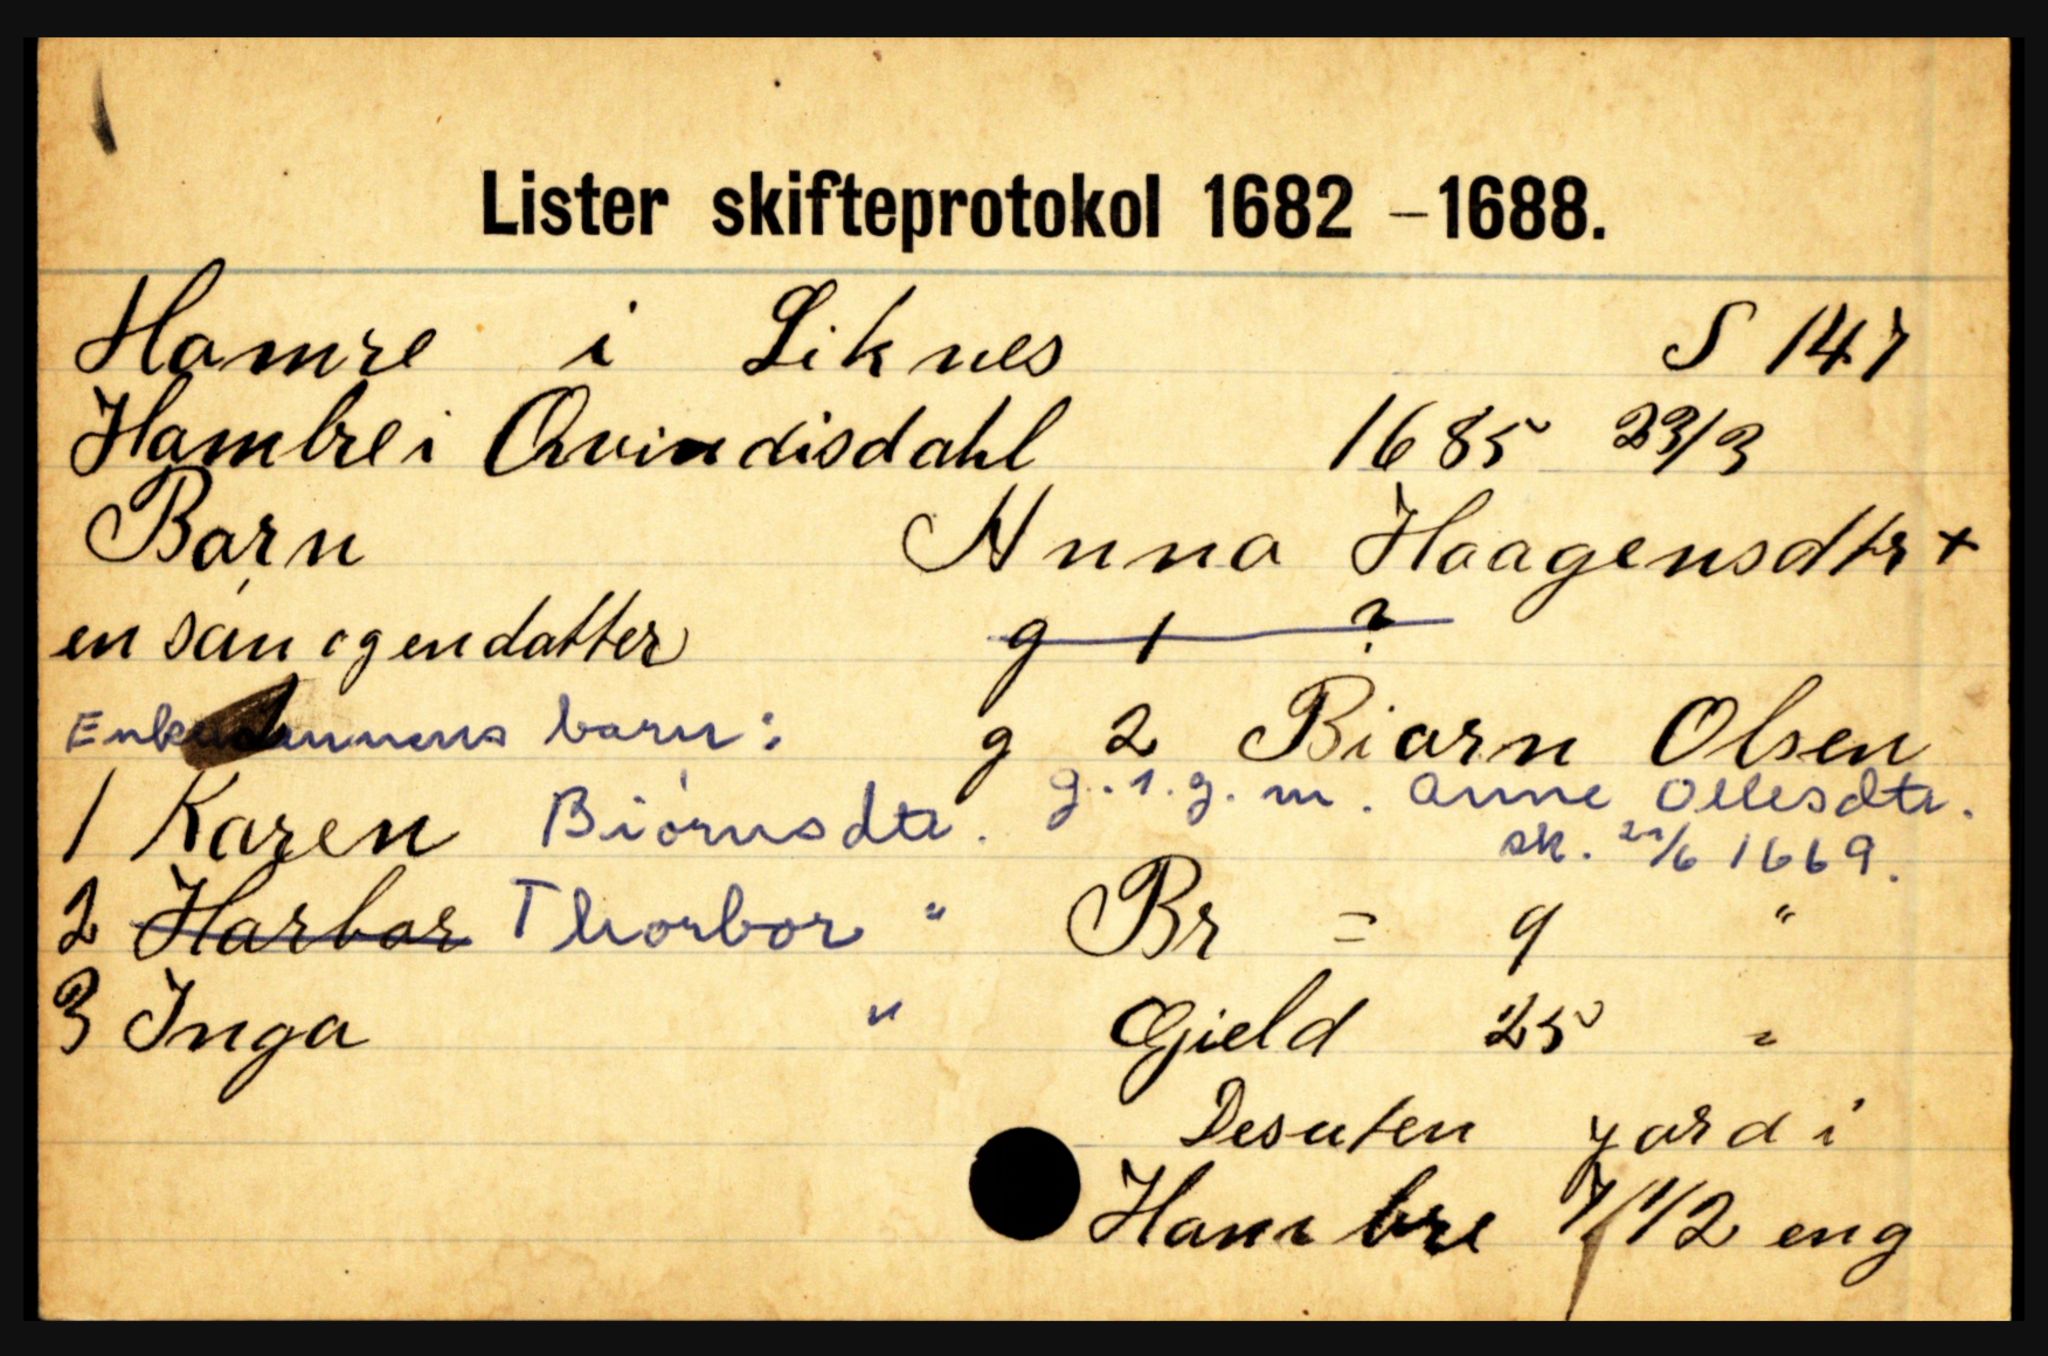 Lister skifteprotokol 1682 – 1688.
Hamre i Liknes S 147
Hambre i Qvindisdahl 1685 23/3
Barn Anna Haagensdtr +
en sön og en datter g 1 ?
Enkemannens barn: g 2 Biörn Olsen
g. 1. g. m. Anne Ollesdtr.
1 Karen Biörnsdtr.
sk. 21/6 1669.
2 Harbor Thorbor " Br = 9 "
3 Inga " Gjeld 25 "
Desuten jord i
Hambre 7 1/2 eng